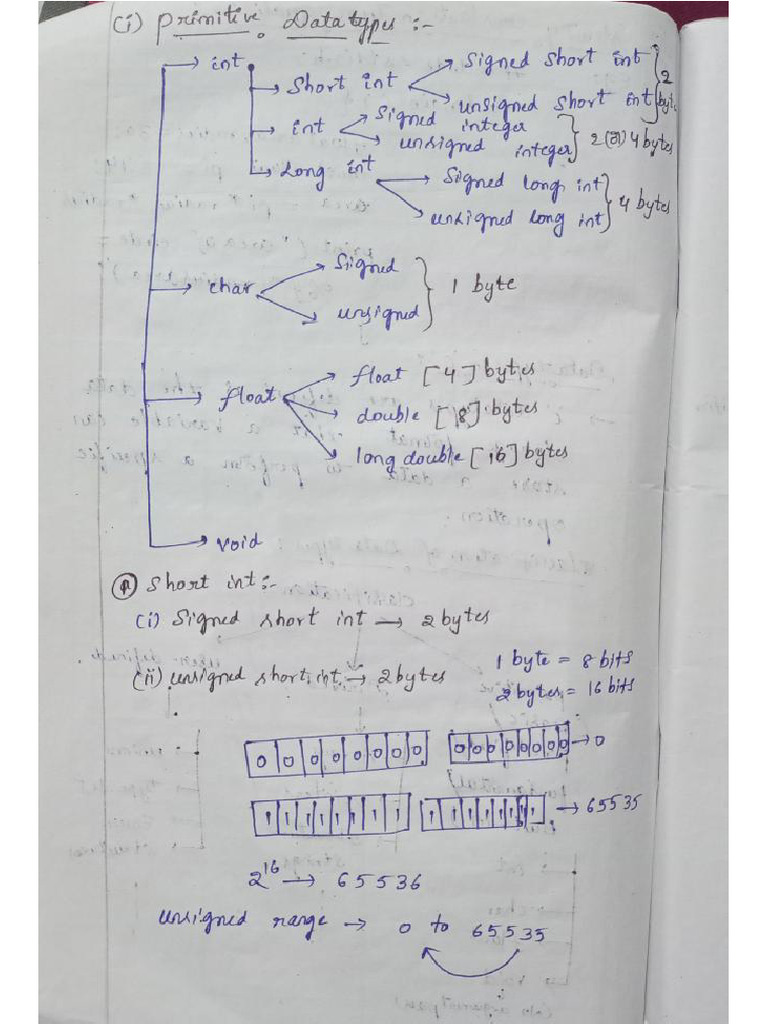 (i) Primitive Data types :-
int
Short int
Signed short int
unsigned short int
2 byte
int
Signed integer
unsigned integer
2 (or) 4 bytes
Long int
Signed long int
unsigned long int
4 bytes
char
Signed
unsigned
1 byte
float
float [4] bytes
double [8] bytes
long double [16] bytes
void
Short int:-
(i) Signed short int → 2 bytes
(ii) unsigned short int → 2 bytes
1 byte = 8 bits
2 bytes = 16 bits
0 0 0 0 0 0 0 0 0 0 0 0 0 0 0 0 → 0
1 1 1 1 1 1 1 1 1 1 1 1 1 1 1 1 → 65535
2^16 → 65536
unsigned range → 0 to 65535